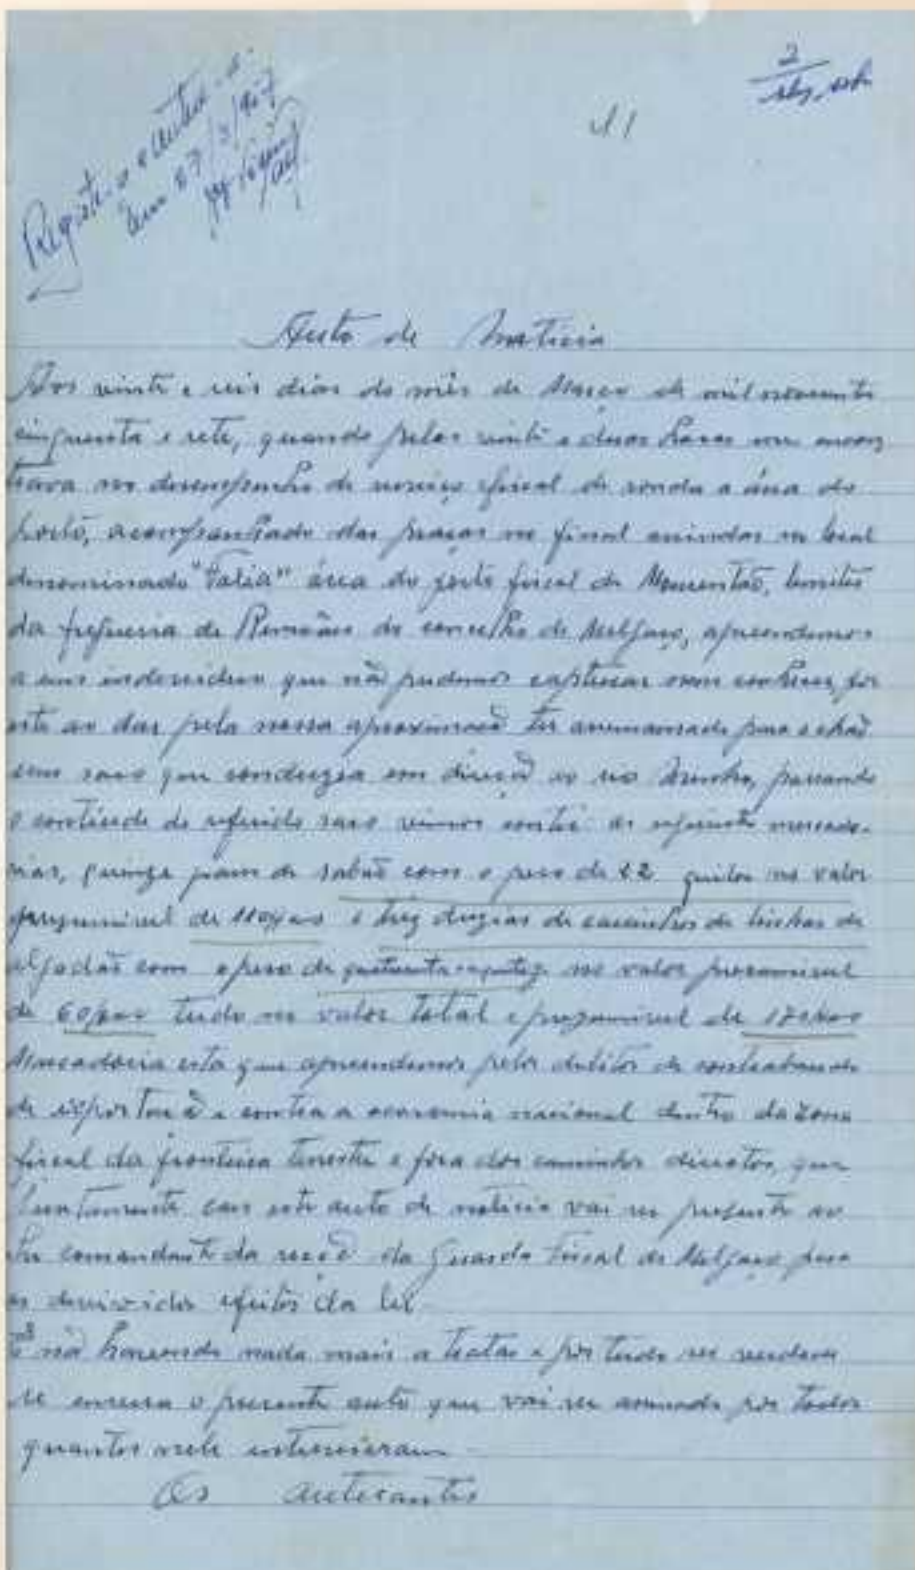 Registe-se e autue-se.
em 27/3/957
2
11
Auto de Noticia
Aos vinte e seis dias do mês de Março de mil novecentos
cinquenta e sete, quando pelas vinte e duas horas me encon
trava no desempenho de serviço fiscal de ronda a área do
posto, acompanhado das praças no final assinadas no local
denominado "Falia" área do posto fiscal de Mourentão, limites
da freguesia de Remoães do concelho de Melgaço, apreendemos
a um individuo que não pudemos capturar nem conhecer, por
este ao dar pela nossa aproximacã ter arremansado para o chaõ
um saco que conduzia em direcã ao rio Minho, passando
o conteúdo do referido saco vimos conter as seguintes mercado-
rias, quinze pam de sabaõ com o peso de 22 quilos no valor
prezumivel de 110$00 e trez duzias de carrinhos de linhas de
algodaõ com o peso de no valor prezumivel
de 60$00 tudo no valor total e prezumivel de 170$00
Mercadoria esta que apreendemos pelos delitos de contrabando
de exportacã e contra a economia nacional dentro da zona
fiscal da fronteira terrestre e fora dos caminhos direitos, que
juntamente com este auto de noticia vai ser presente ao
Snr comandante da seccã da Guarda Fiscal de Melgaço para
os devidos efeitos da lei
E naõ havendo nada mais a tratar e por tudo ser verdade
se encerra o presente auto que vai ser assinado por todos
quantos nele intervieram
Os autuantes